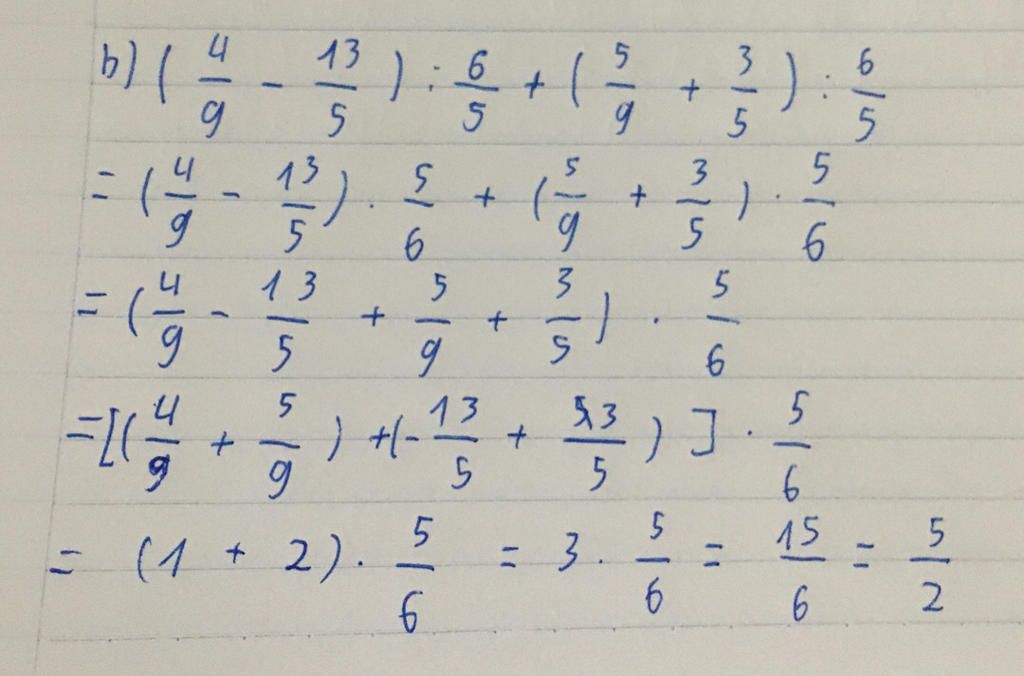 b) ( 4/9 - 13/5 ) : 6/5 + ( 5/9 + 3/5 ) : 6/5
= ( 4/9 - 13/5 ) . 5/6 + ( 5/9 + 3/5 ) . 5/6
= ( 4/9 - 13/5 + 5/9 + 3/5 ) . 5/6
= [ ( 4/9 + 5/9 ) + ( - 13/5 + 3/5 ) ] . 5/6
= ( 1 + 2 ) . 5/6 = 3 . 5/6 = 15/6 = 5/2